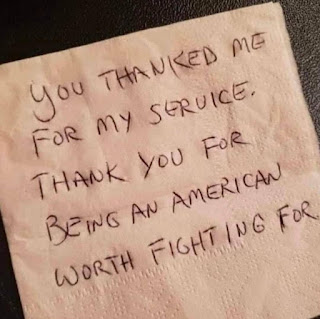 YOU THANKED ME
FOR MY SERVICE.
THANK YOU FOR
BEING AN AMERICAN
WORTH FIGHTING FOR